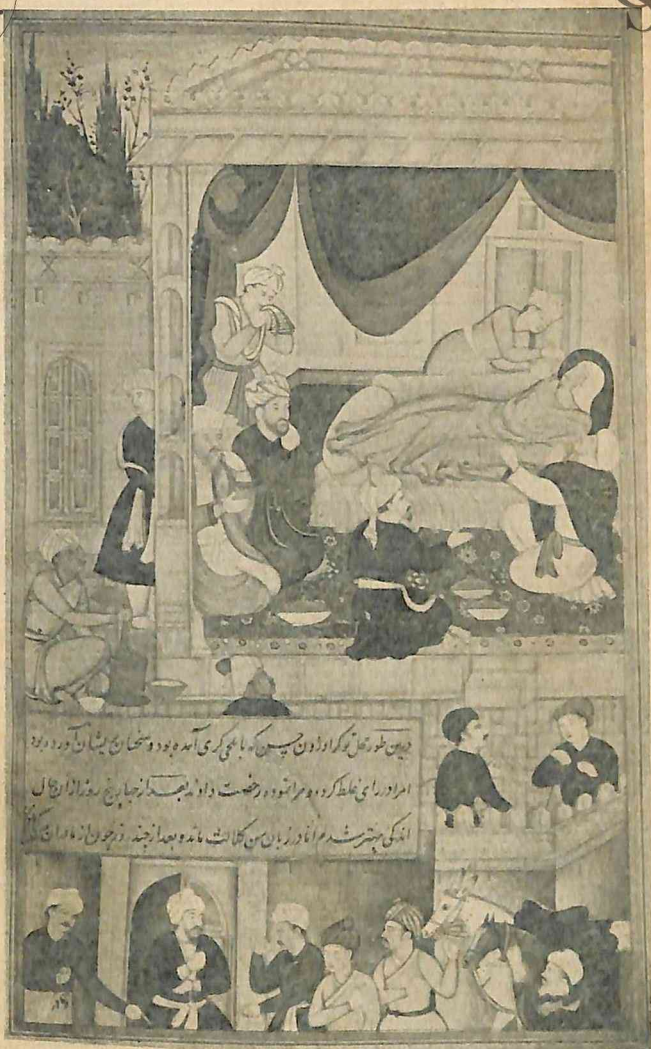 همین طور حال نوکر اوزون حسن که بایلچی گری آمده بود و سخنان پریشان آورده بود
امرا در رای غلط کرده و مرا نموده رخصت دادند بعد از چهار پنج روز از آن حال
اندکی بهتر شدم اما در زبان من کلالت ماند و بعد از چند روز چون از مادران